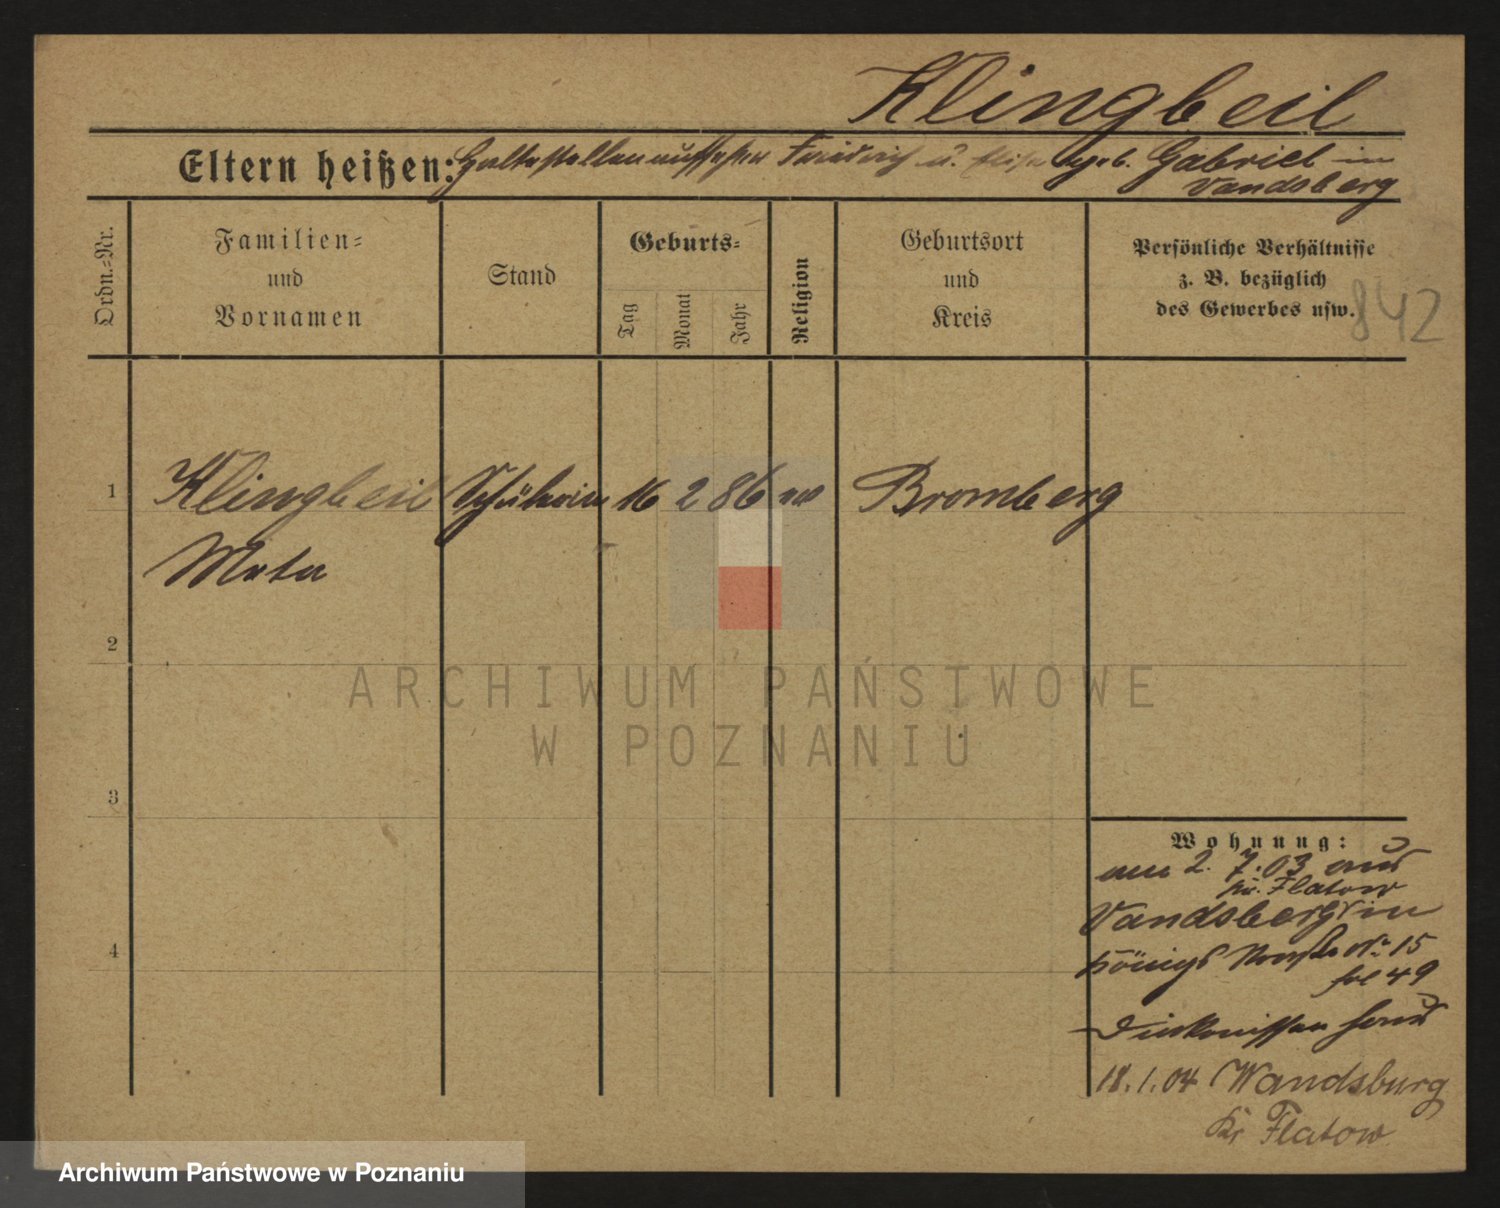 Klingbeil
Eltern heißen: Haltestellenaufseher Friedrich u. geb. Gabriel in
Vandsberg
Ordn.-Nr.
Familien-
und
Vornamen
Stand
Geburts-
Tag
Monat
Jahr
Religion
Geburtsort
und
Kreis
Persönliche Verhältnisse
z. B. bezüglich
des Gewerbes usw.
842
1 Klingbeil Schülerin 16 2 86 ev Bromberg
Meta
2
3
4
Wohnung:
am 2. 7. 03 aus
Kr. Flatow
Vandsberg in
Königstraße No 15
fol 49
Diakonissen haus
18. 1. 04 Wandsburg
Kr Flatow
ARCHIWUM PAŃSTWOWE
W POZNANIU
Archiwum Państwowe w Poznaniu